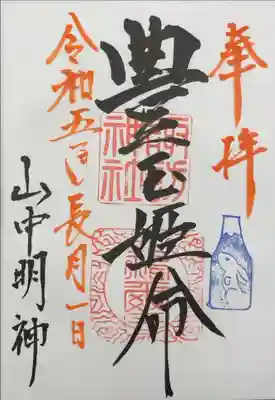 奉拝
豊玉姫命
神社
令和五とし長月一日
山中明神